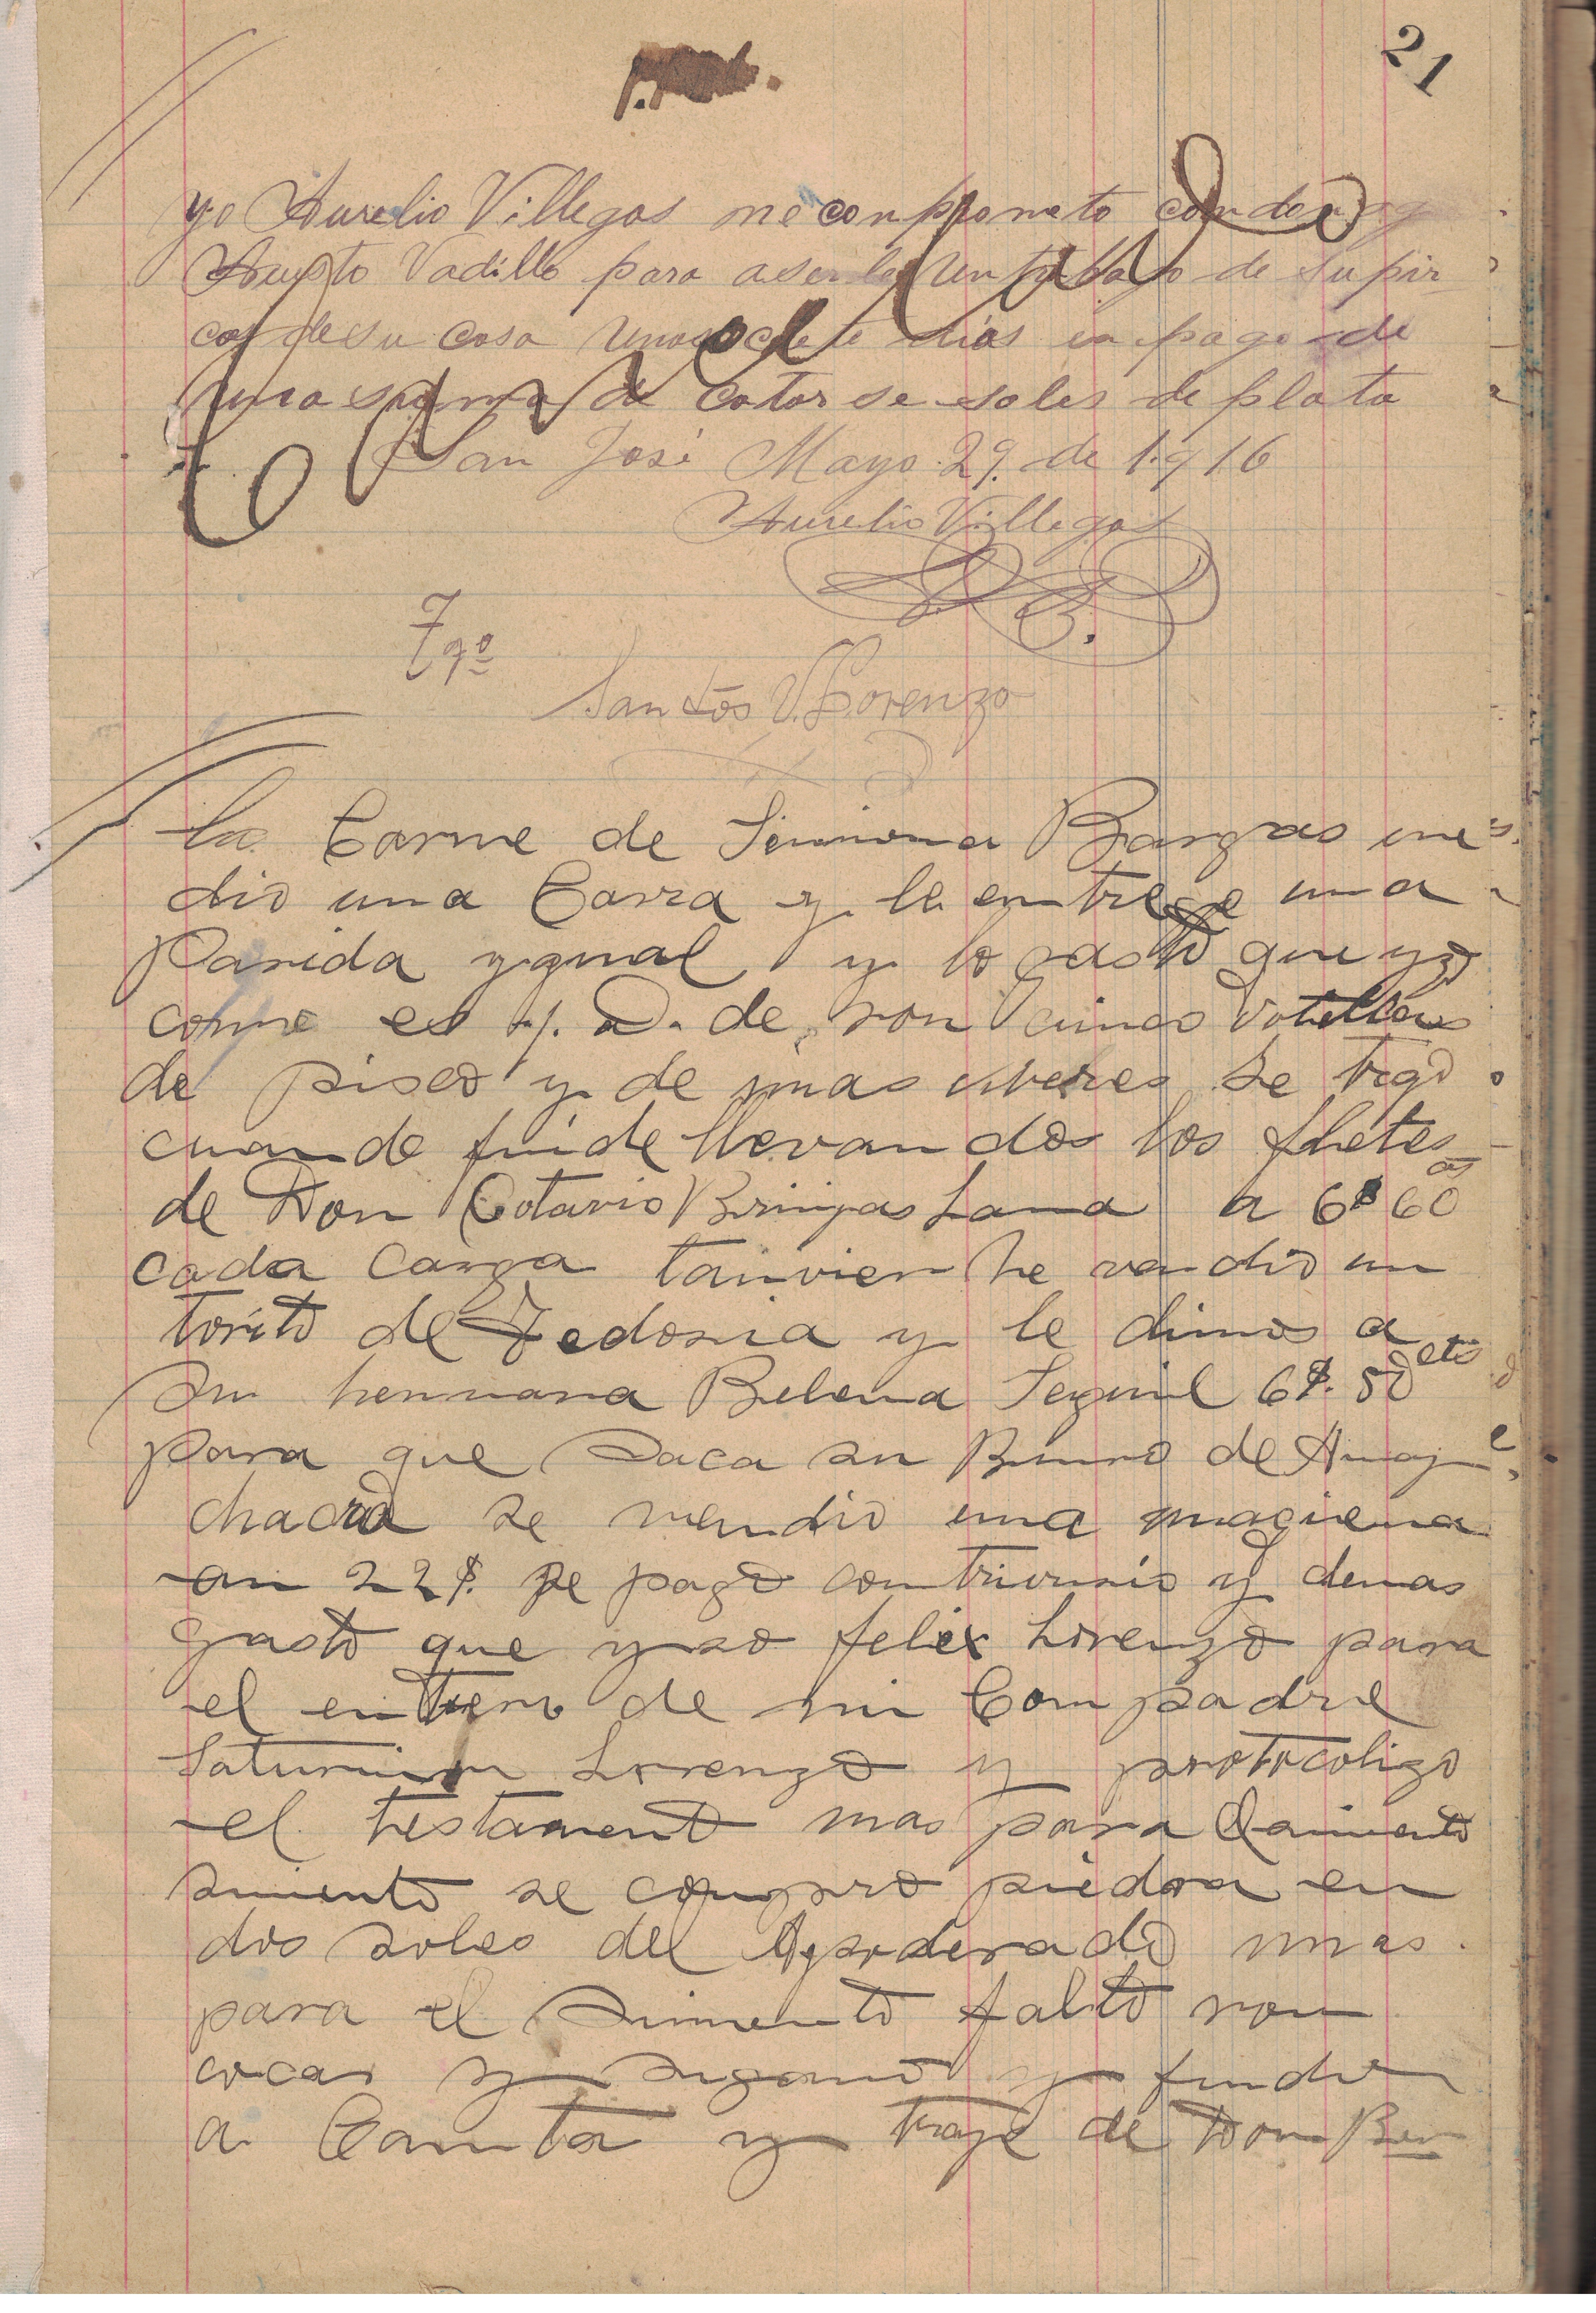 21
yo Aurelio Villegas me conpprometo con don
Austo Vadillo para aserle un trabajo de su pir
cas de su casa unos siete dias en pago de
una suma de catorse soles de plata
San José Mayo 29. de 1916
Aurelio Villegas
Tgo
Santos V. Lorenzo
La Carne de Simiona Bargas me
dio una Carra y le entrege una
Parida ygual y lo gasto que yso
come es son cinco Votellas
de pisco y de mas viveres se trajo
cuando fuide llevandos los fletes
de Don Cotavio Bringas Lama a 6$ 60
cada Carga tanvien he vendio un
torito de Fedosia y le dimos a
su hermana Belena Seguil 6$. 50 cts
para que saca su Burro de
chacra se vendio una maciena
an 22$. se pago contrivusio y demas
gasto que yso felix Lorenzo para
el entiero de mi Compadre
Saturnino Lorenzo y protocoligo
el testamento mas para
simento se compro piedra en
dos soles del Apoderado mas.
para el simento falto ron
cocas y sigarro y fuide
a Canta y traje de Don Ben